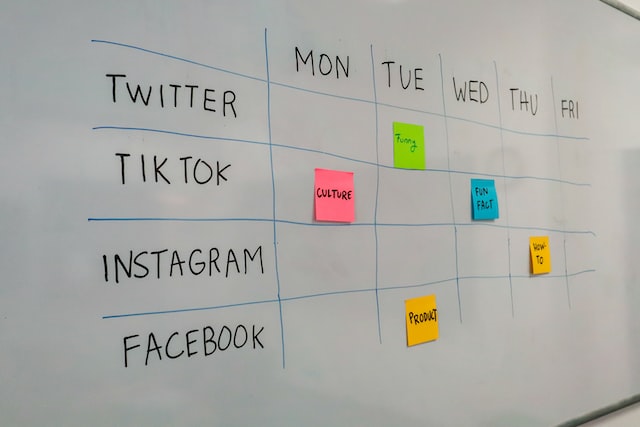 MON TUE WED THU FRI
TWITTER
Funny
TIKTOK
CULTURE
FUN
FACT
INSTAGRAM
HOW-
TO
FACEBOOK
PRODUCT